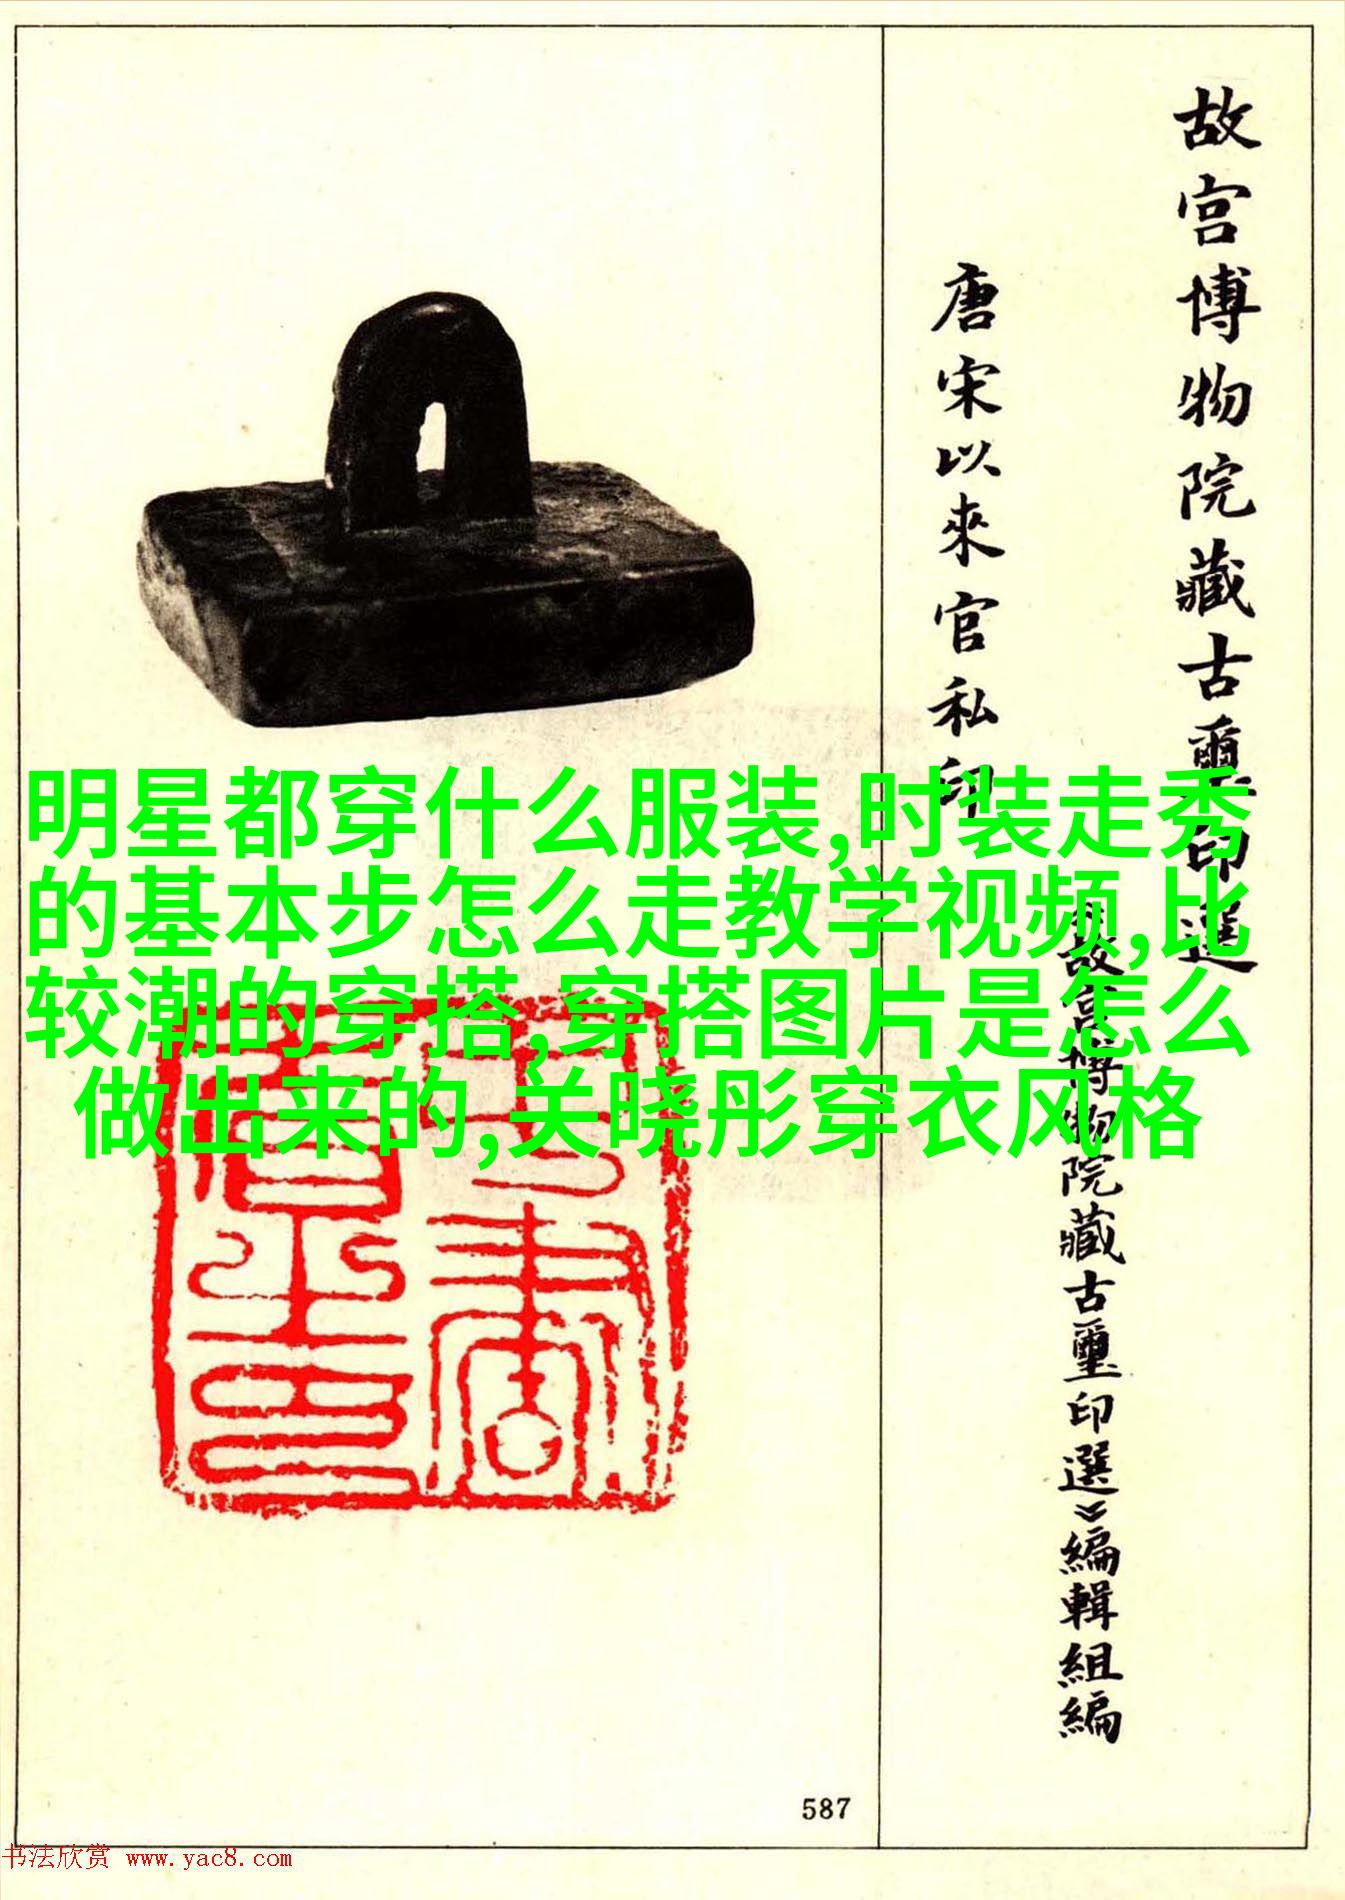 故宮博物院藏古璽印選
唐宋以來官私印
《故宮博物院藏古璽印選》編輯組編
明星都穿什么服装,时装走秀
的基本步怎么走教学视频,比
较潮的穿搭,穿搭图片是怎么
做出来的,关晓彤穿衣风格
587
书法欣赏 www.yac8.com